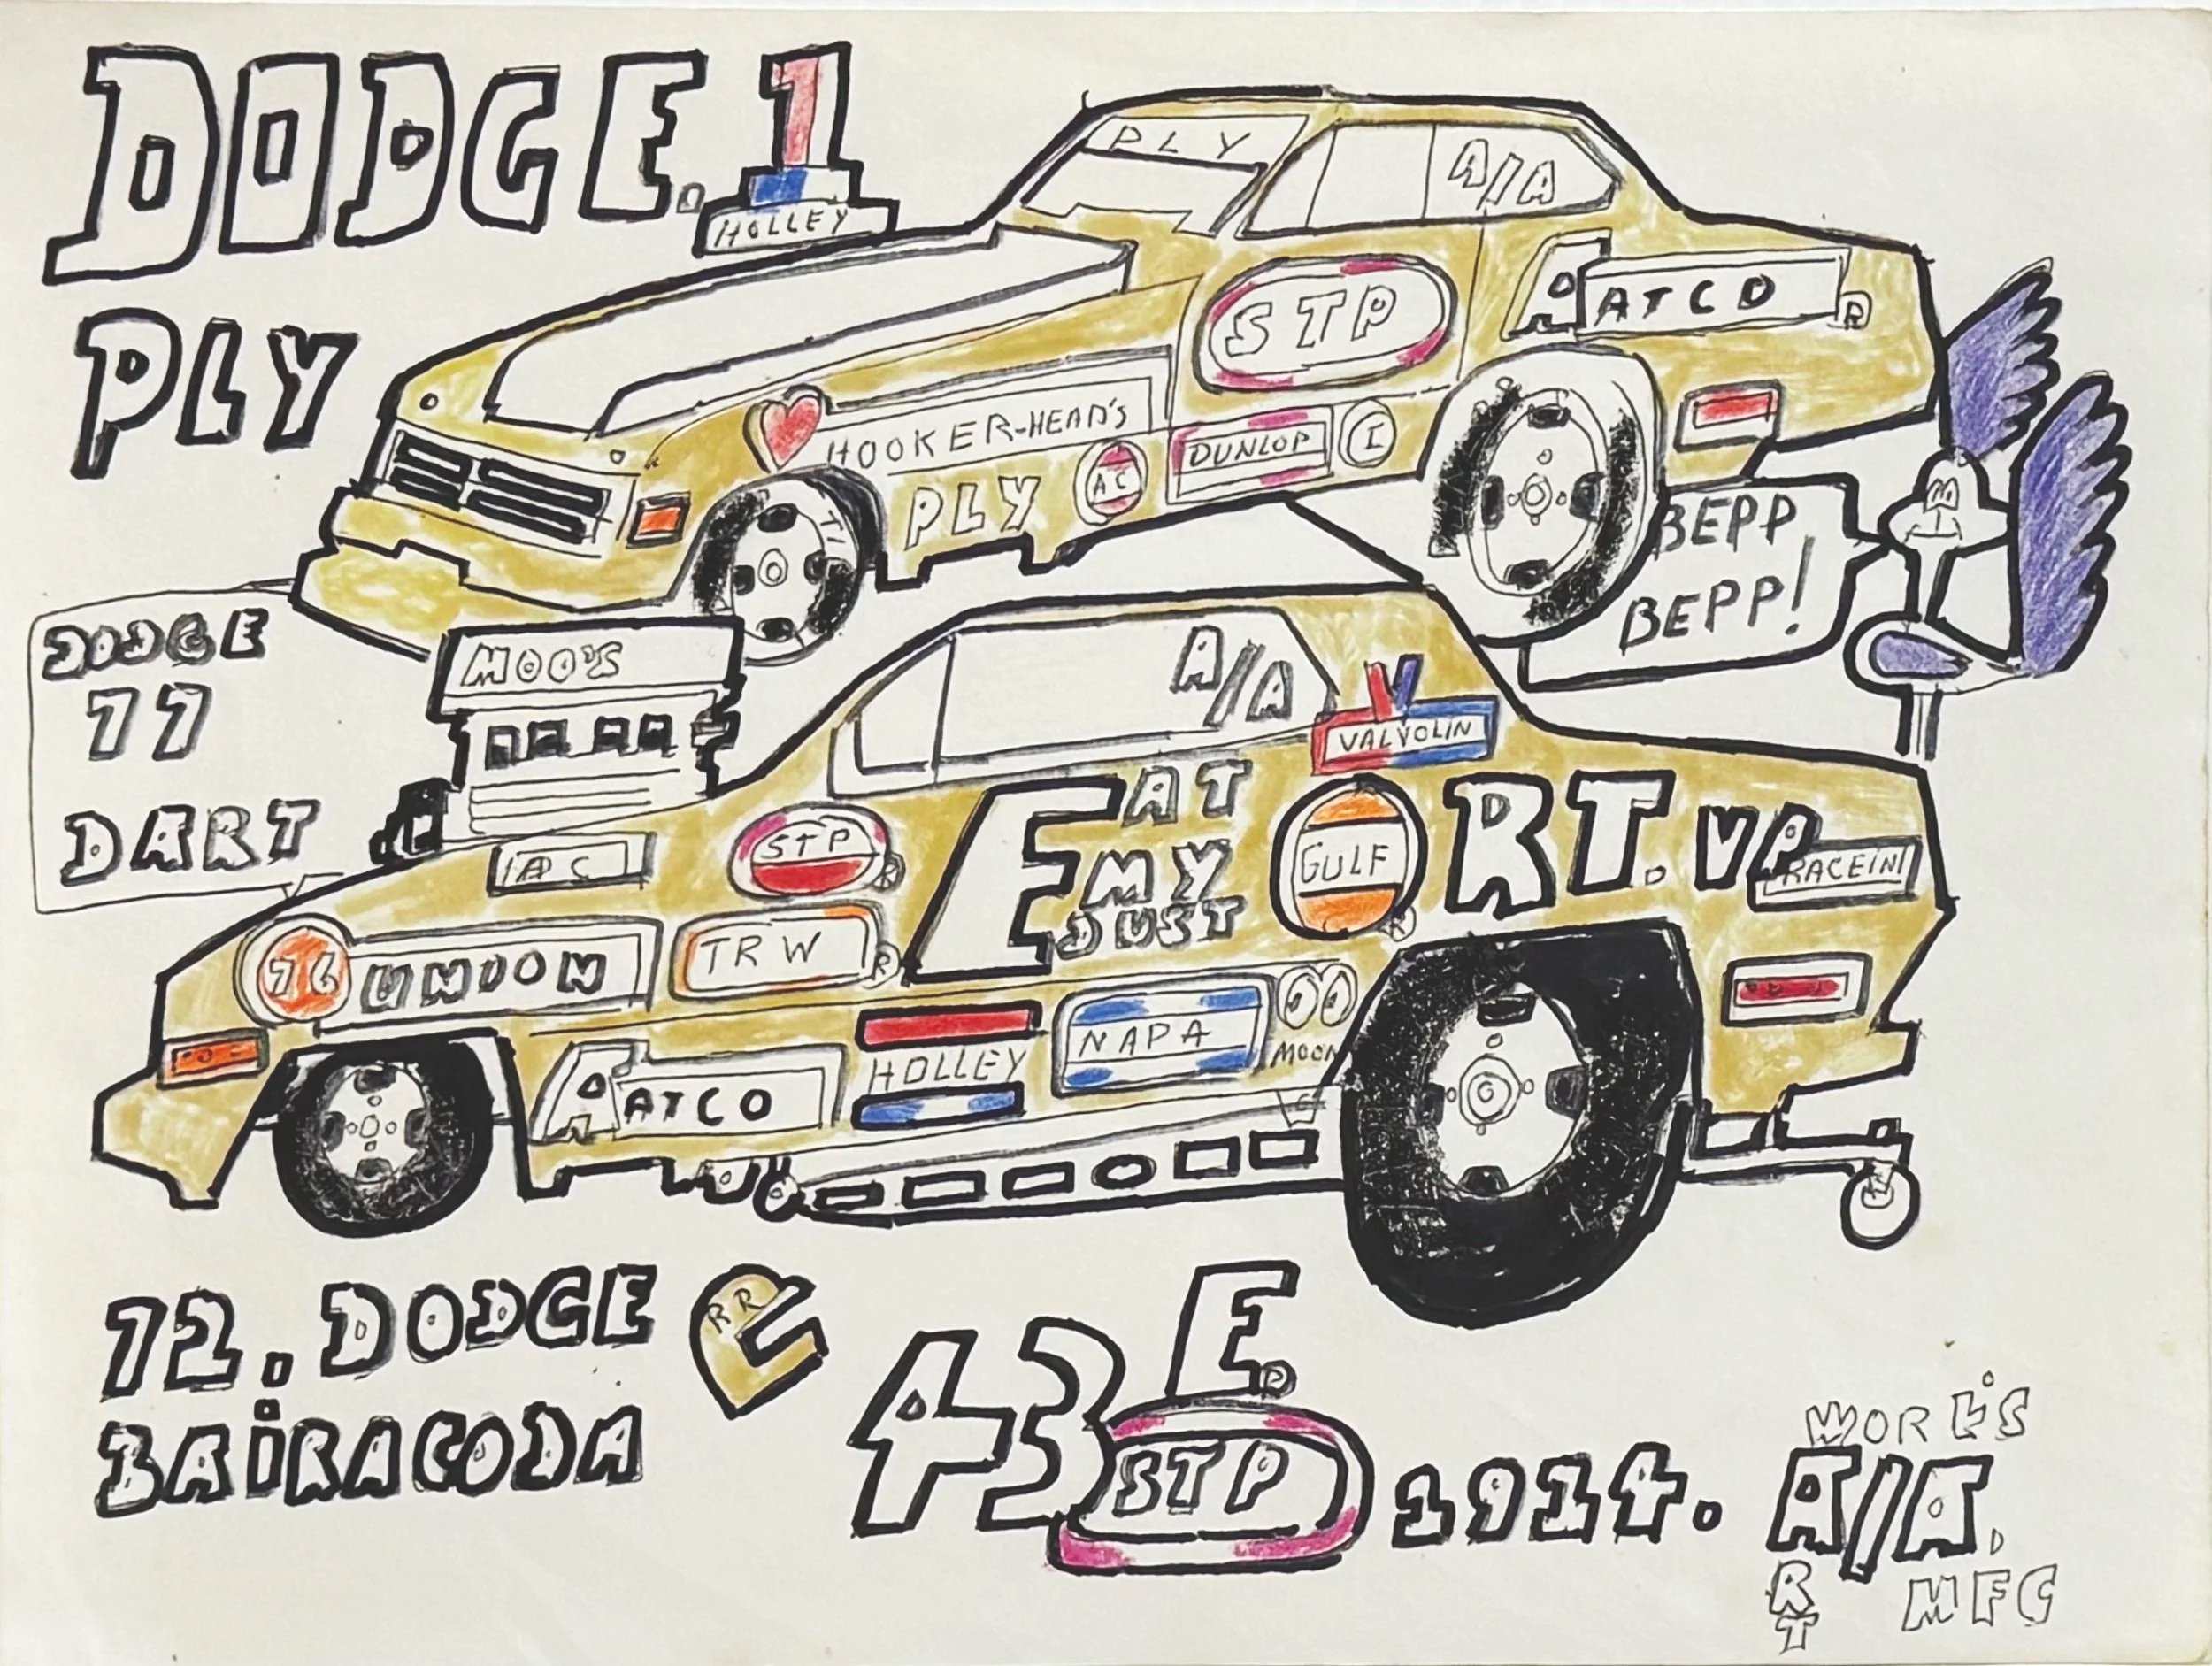 DODGE. 1
HOLLEY
PLY
PLY
A/A
STP
AATCO
R
HOOKER-HEAD'S
PLY
AC
DUNLOP
I
BEPP
BEPP!
DODGE
77
DART
MOO'S
A/A
VALVOLIN
STP
R
EAT
MY
DUST
GULF
R
RT. VP
RACEIN
76 UNION
TRW
R
AATCO
HOLLEY
NAPA
MOON
72. DODGE
BAiRACODA
RR
43
E.
STP
1924.
A/A.
RT
MFC